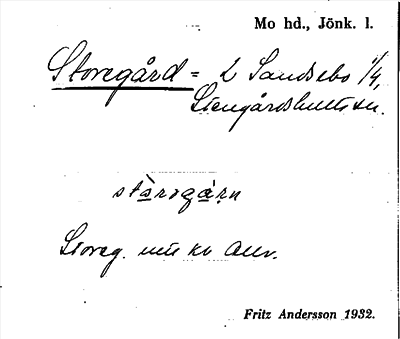 Mo hd., Jönk. l.
Storegård = L Sandsebo 1/4,
Stengårdshults sn.
Storeg. nu
Fritz Andersson 1932.